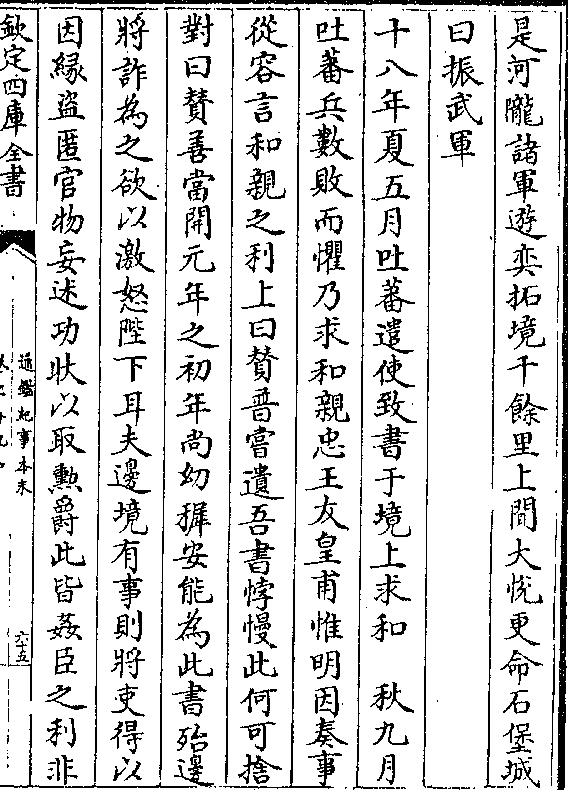 是河隴諸軍遊奕拓境千餘里上聞大悅更命石堡城
曰振武軍
十八年夏五月吐蕃遣使致書于境上求和 秋九月
吐蕃兵數敗而懼乃求和親忠王友皇甫惟明因奏事
從容言和親之利上曰賛普嘗遺吾書悖慢此何可捨
對曰賛善當開元年之初年尚幼穉安能為此書殆邊
將詐為之欲以激怒陛下耳夫邊境有事則將吏得以
因縁盜匿官物妄述功狀以取勲爵此皆姦臣之利非
欽定四庫全書
通鑑紀事本末
六十五